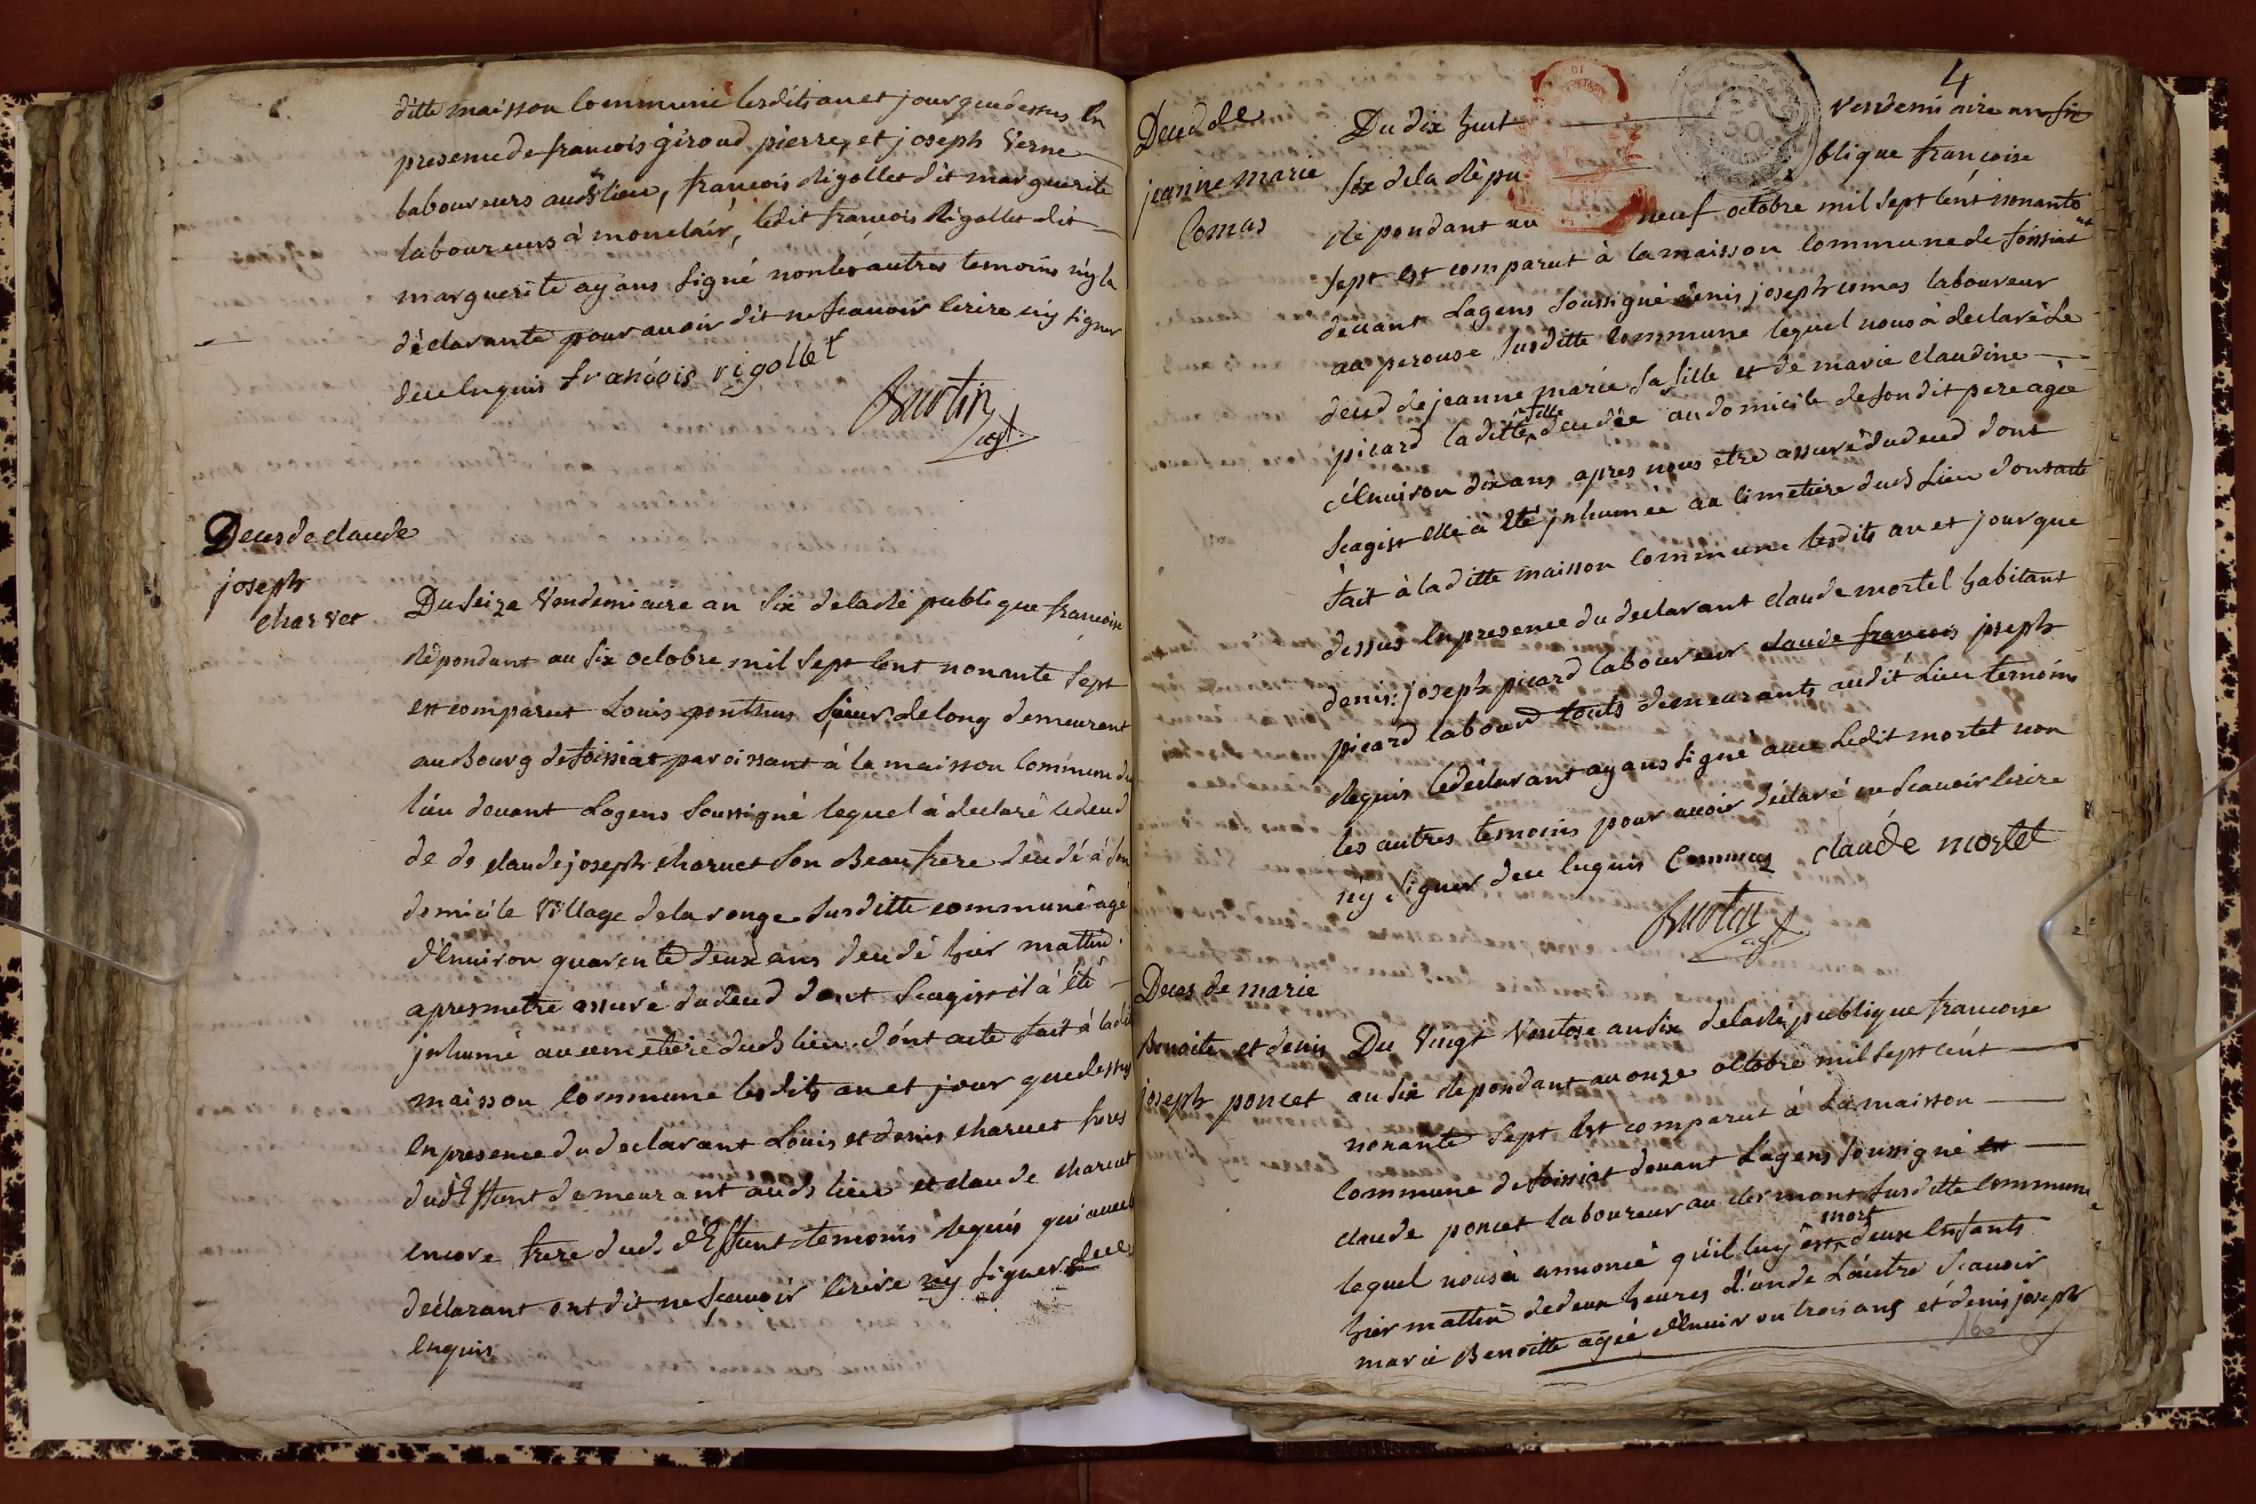 ditte maisson Commune lesdits an et jour que dessus En
presence de francois giroud pierre, et joseph Verne
laboureurs auds lieu, francois Rigollet dit marguerite
laboureurs à monclair, ledit francois Rigollet dit
marguerite ayans signé non les autres temoins n'y la
déclarante pour avoir dit ne scavoir Ecrire n'y signer
de ce Enquis francois rigollet
Buotin
agt.
Deces de claude
joseph
charvet
Du seize Vendemiaire an six de la Ré publique francoise
Répondant au six octobre mil sept Cent nonante sept
est comparut Louis ponthus sieur de long demeurant
au Bourg de foissiat paroissant à la maisson Commune du
lieu devant Lagens soussigné lequel à declaré le deced
de de claude joseph charvet son Beau frere decedé à son
domicile Village de la ronge susditte commune agé
d'Environ quarente deux ans decedé hier mattin
apres metre assuré du deced dont Scagist il à été
jnhumé au cimetiere duds lieu dont acte fait à laditte
maisson Commune lesdits an et jour que dessus
En presence du declarant Louis et denis charvet freres
dud deffunt demeurant auds lieu et claude charvet
encore frere duds deffunt temoins requis qui avec le
déclarant ont dit ne scavoir Ecrire n'y signer de ce
Enquis
4
Deced de
jeanne marie
Comas
Du dix huit Vendemiaire an six
six de la Répu blique françoise
Répondant au neuf octobre mil sept Cént nonante
sept Est comparut à la maisson Commune de foissiat
devant Lagens soussigné denis joseph comas laboureur
aa perouse susditte Commune lequel nous à declaré Le
deced de jeanne marie sa fille et de marie claudine
picard laditte fille decedée au domicile de son dit pere agée
d'Environ dix ans apres nous etre assuré du deced dont
Scagist Elle à Eté jnhumée au Cimetiere duds Lieu dont acte
fait à la ditte maisson Commune lesdits an et jour que
dessus En presence du declarant claude mortel habitant
denis joseph picard laboureur claude francois joseph
picard labourd touts demeurants audit Lieu temoins
Requis le déclarant ayans signé avec Ledit mortel non
les autres temoins pour avoir déclaré ne scavoir Ecrire
n'y signer de ce Enquis Commas claude mortel
Buotin
agt.
Deces de marie
Benoite et denis
joseph poncet
Du Vingt Ventose an six de la Ré publique francoise
an six Repondant au onze octobre mil sept cént
nonante sept Est comparut à La maisson
Commune de foissiat devant L'agens soussigné est
claude poncet laboureur au clermont susditte Commune
lequel nous à annoncé qu'il luy est mort deux Enfants
hier mattin de deux heures l'un de L'autre Scavoir
marie Benoitte agée d'Environ trois ans et denis joseph
160